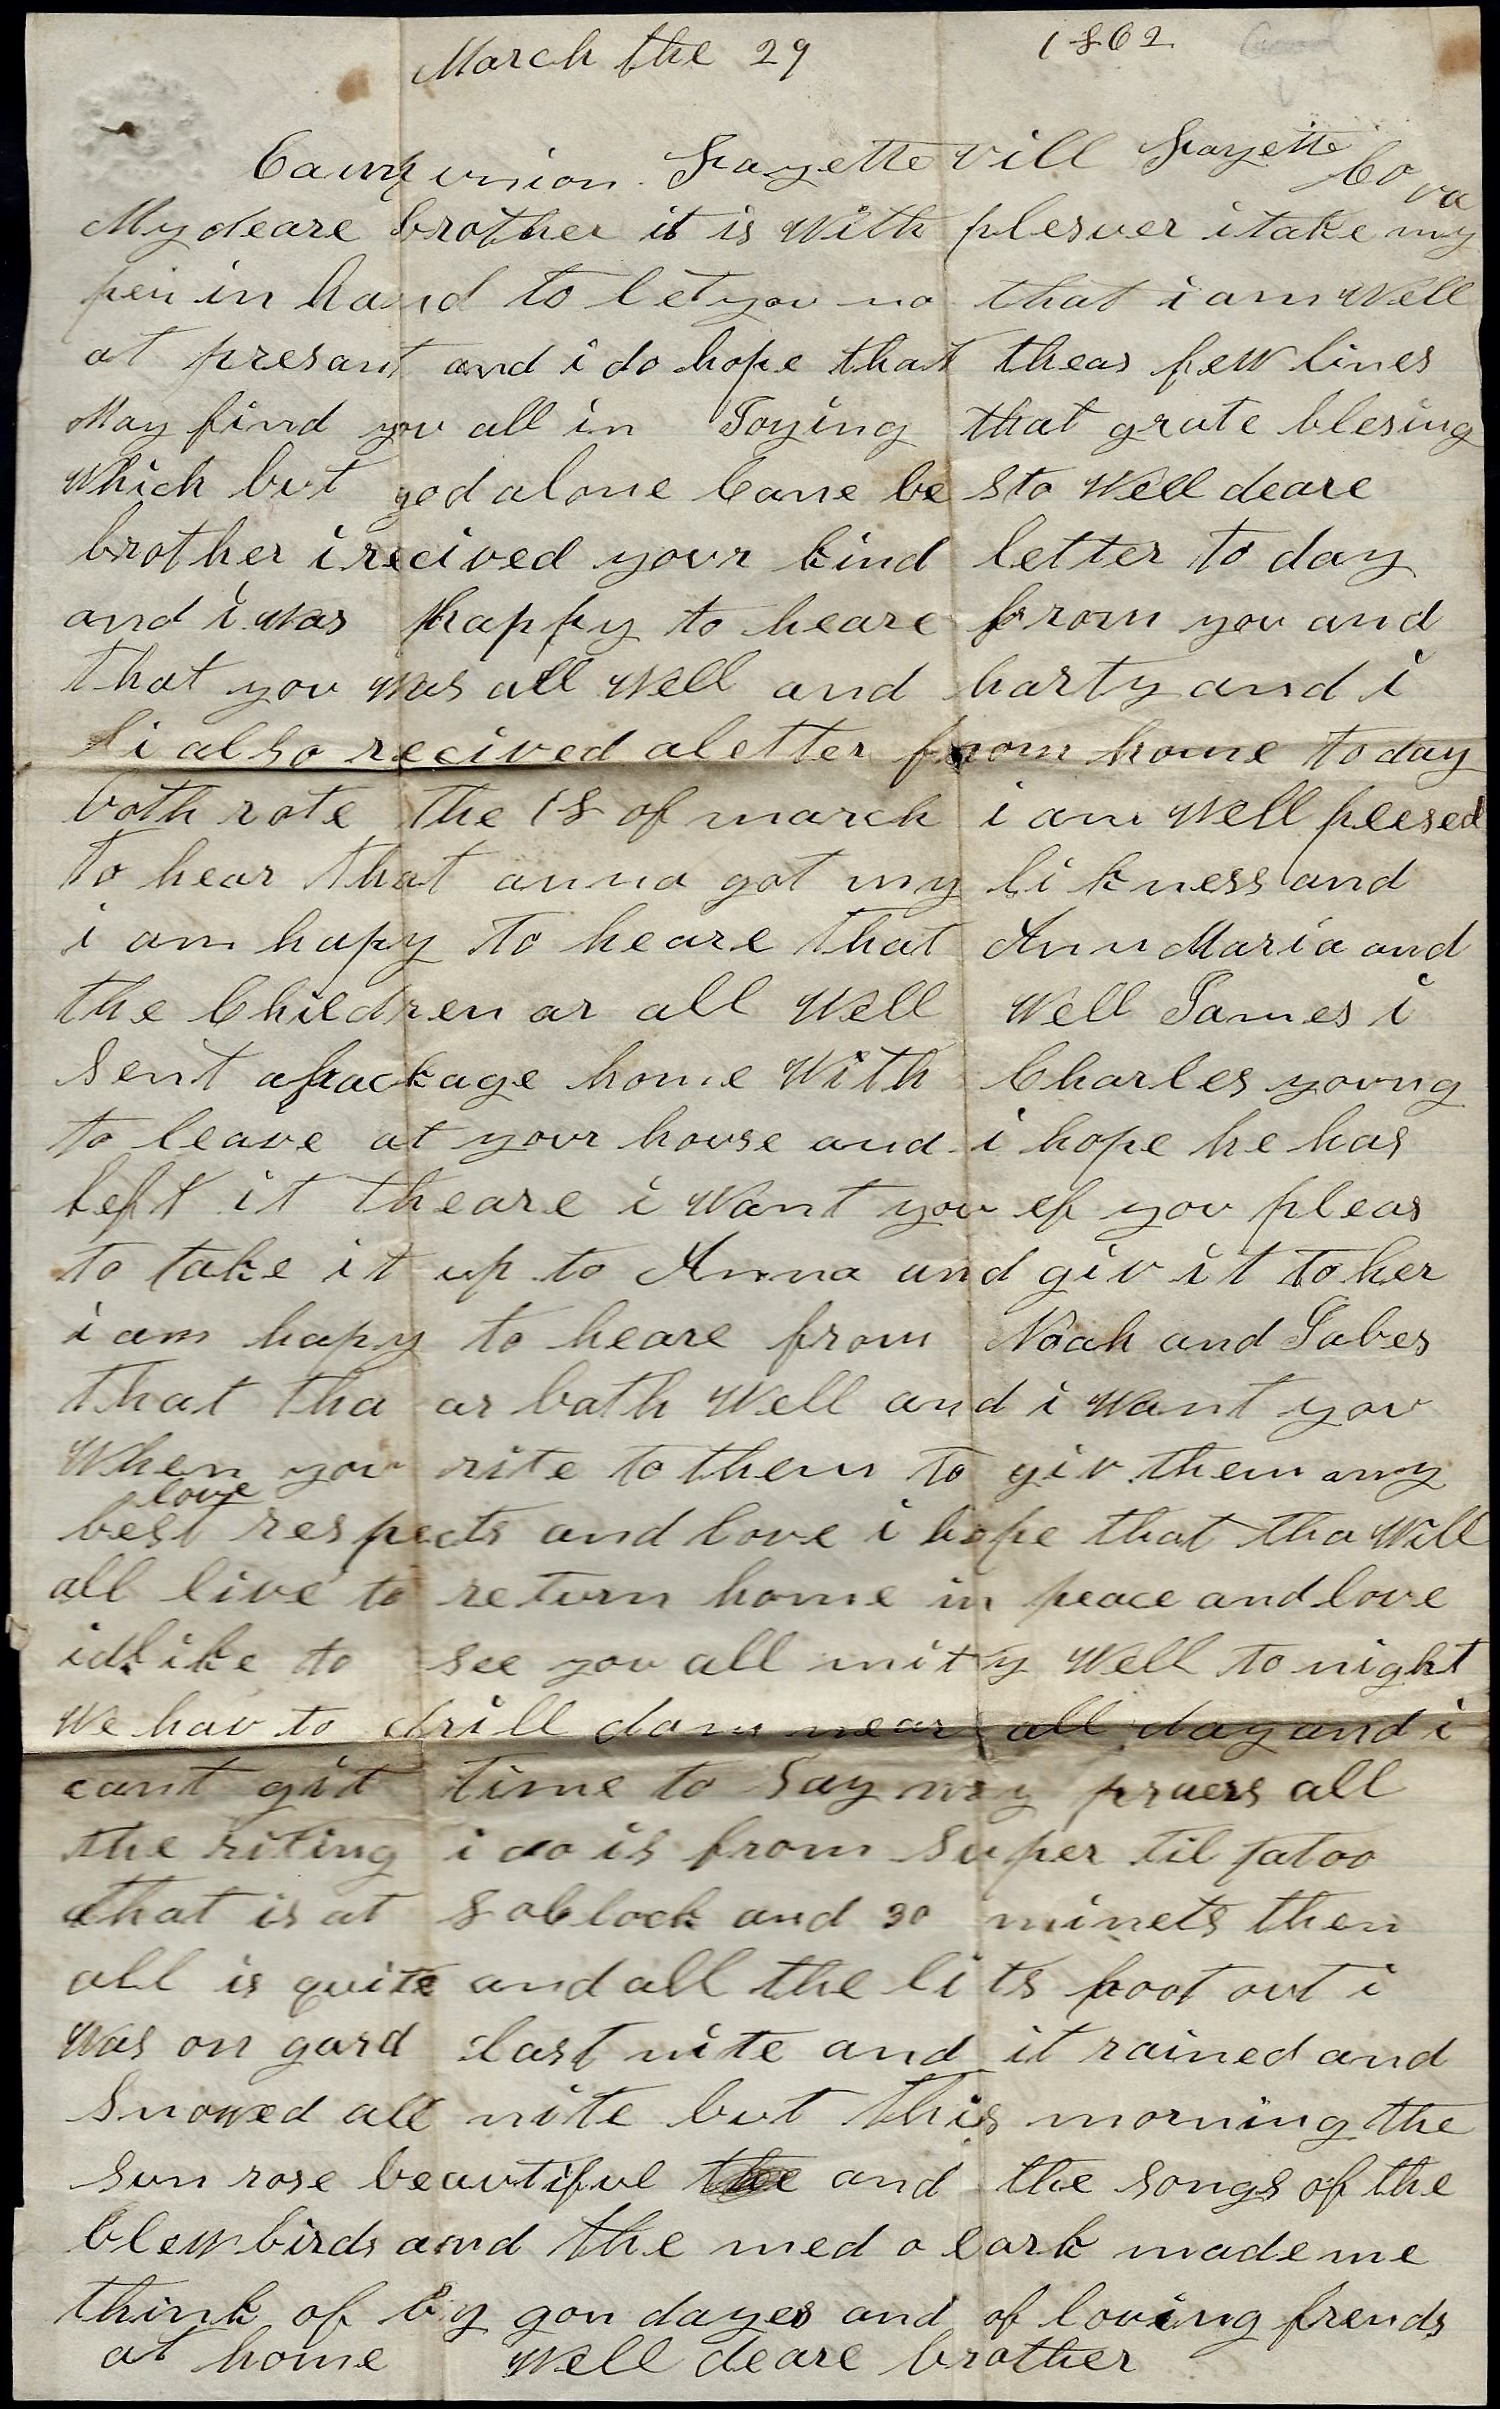 March the 29 1862
Camp union Fayette vill Fayette Co va
My deare brother it is With plesuer i take my
pen in hand to let you no that i am Well
at presant and i do hope that theas few lines
May find you all in Joying that grate blesing
Which but god alone Cane be sto Well deare
brother i recived your kind letter to day
and i was happy to heare from you and
that you was all Well and harty and i
i also recived a letter from home to day
both rote the 18 of march i am Well plesed
to hear that anna got my likness and
i am hapy to heare that Ann Maria and
the Children ar all Well Well James i
sent a package home With Charles young
to leave at your house and i hope he has
left it theare i Want you ef you pleas
to take it up to Anna and giv it to her
i am hapy to heare from Noah and Jabes
that tha ar both Well and i Want you
When you rite to them to giv them my
love
best respects and love i hope that tha Will
all live to return home in peace and love
id like to see you all mity Well to night
We hav to drill dam near all day and i
cant git time to say my praers all
the riting i do is from super til tatoo
that is at 8 oclock and 30 minets then
all is quite and all the lits poot out i
Was on gard last nite and it rained and
Snowed all nite but this morning the
sun rose beautiful and the songs of the
blewbirds and the medo lark made me
think of by gon dayes and of loving frends
at home Well deare brother